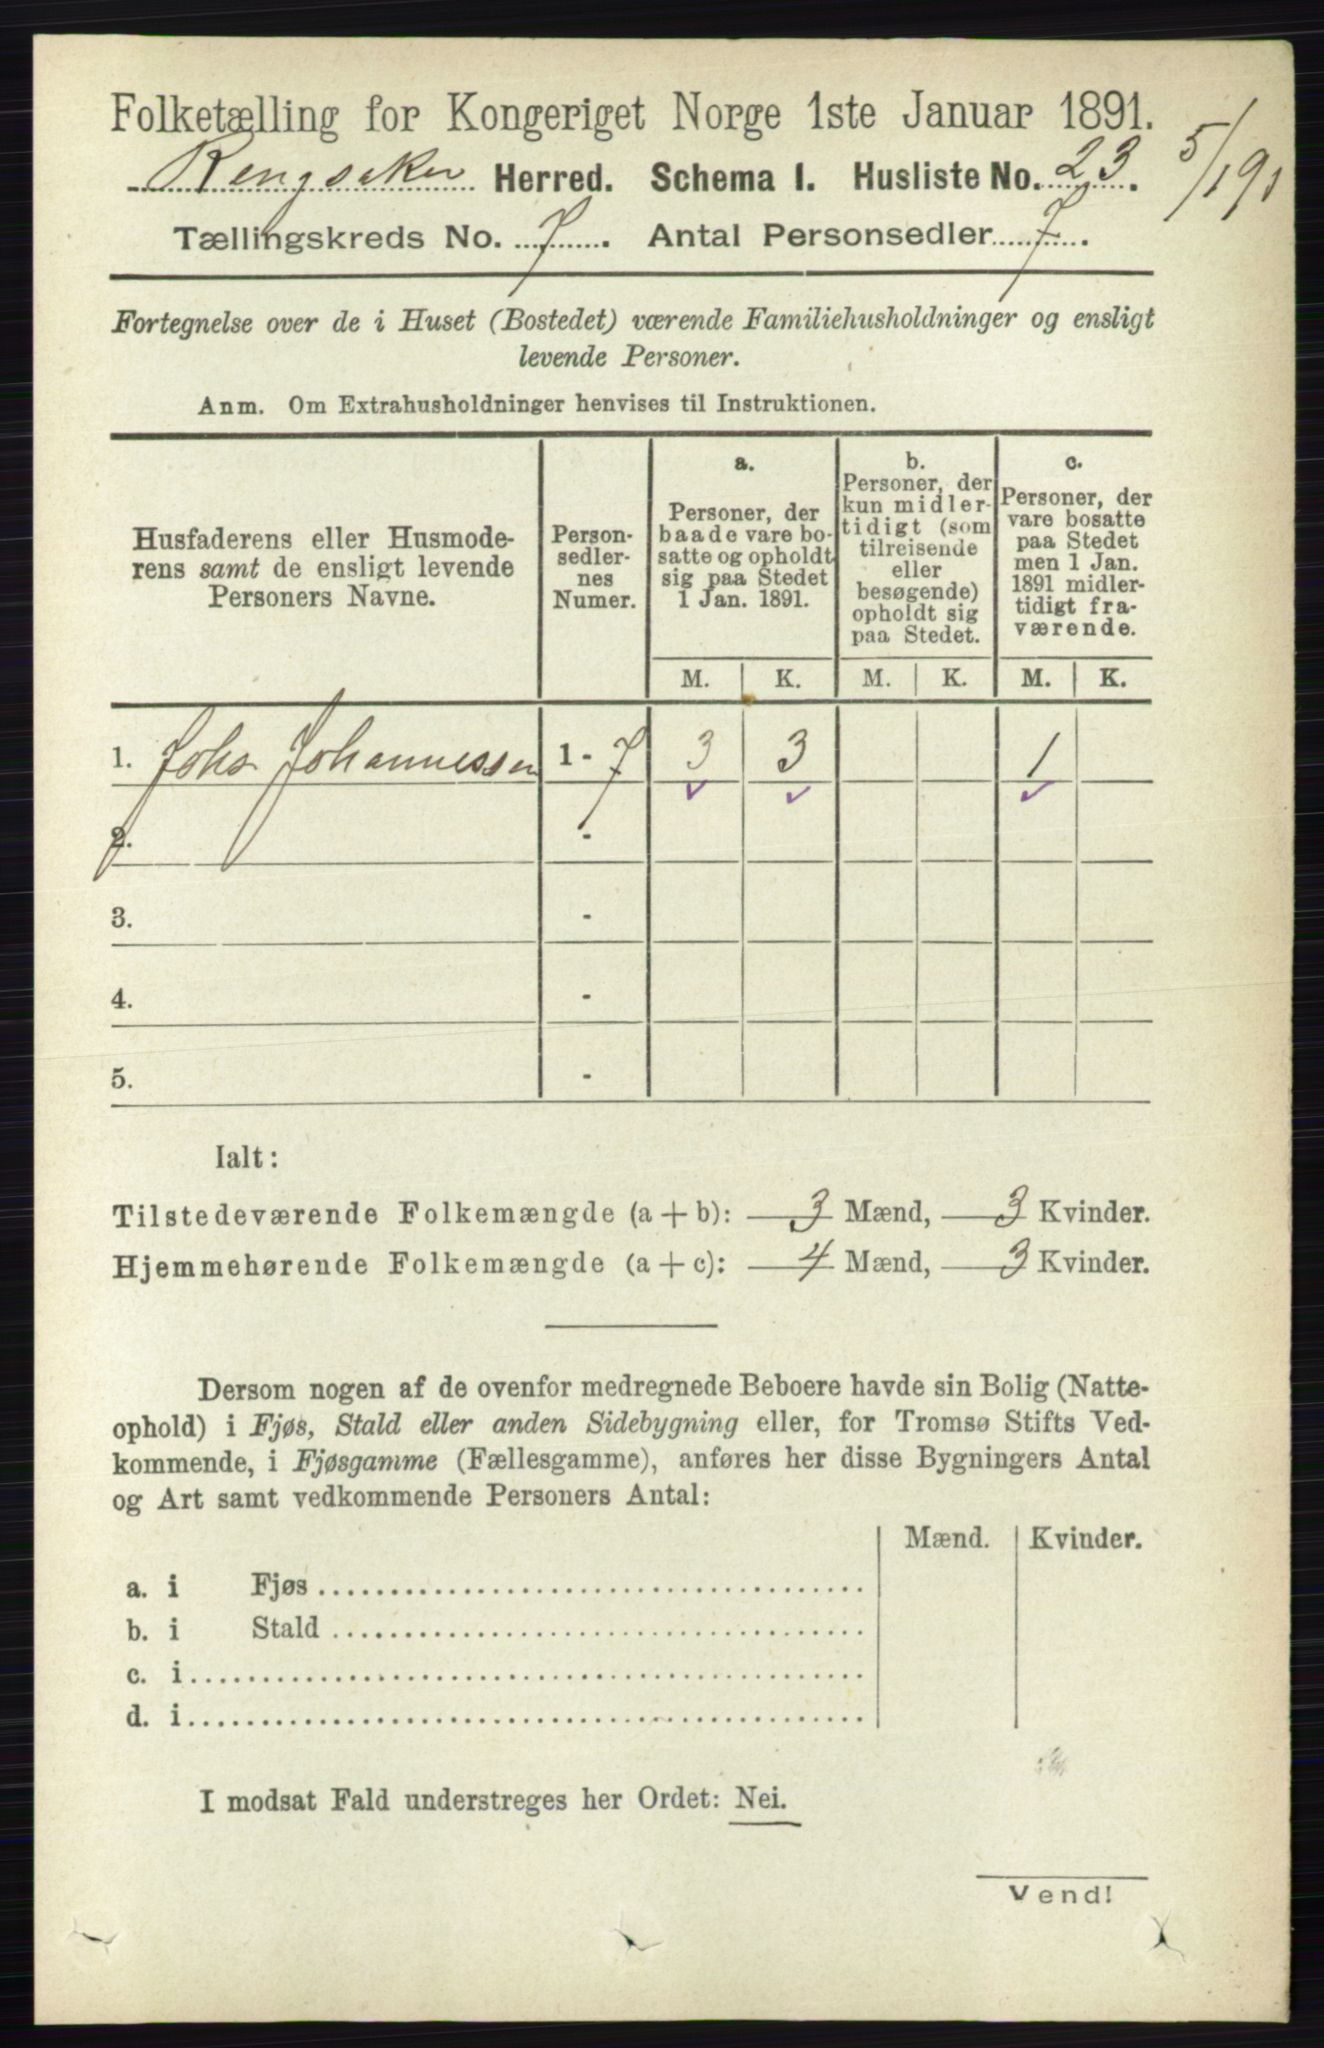 Folketælling for Kongeriget Norge 1ste Januar 1891.
Rengsaker Herred. Schema I. Husliste No. 23. 5/1 91
Tællingskreds No. 7. Antal Personsedler 7.
Fortegnelse over de i Huset (Bostedet) værende Familiehusholdninger og ensligt
levende Personer.
Anm. Om Extrahusholdninger henvises til Instruktionen.
Husfaderens eller Husmode-
rens samt de ensligt levende
Personers Navne.
Person-
sedler-
nes
Numer.
a.
Personer, der
baade vare bo-
satte og opholdt
sig paa Stedet
1 Jan. 1891.
b.
Personer, der
kun midler-
tidigt (som
tilreisende
eller
besøgende)
opholdt sig
paa Stedet.
c.
Personer, der
vare bosatte
paa Stedet
men 1 Jan.
1891 midler-
tidigt fra-
værende.
M. K. M. K. M. K.
1. Johs Johannessen 1 - 7 3 3 1
2. -
3. -
4. -
5. -
Ialt:
Tilstedeværende Folkemængde (a + b): 3 Mænd, 3 Kvinder.
Hjemmehørende Folkemængde (a + c): 4 Mænd, 3 Kvinder.
Dersom nogen af de ovenfor medregnede Beboere havde sin Bolig (Natte-
ophold) i Fjøs, Stald eller anden Sidebygning eller, for Tromsø Stifts Ved-
kommende, i Fjøsgamme (Fællesgamme), anføres her disse Bygningers Antal
og Art samt vedkommende Personers Antal:
Mænd. Kvinder.
a. i Fjøs
b. i Stald
c. i
d. i
I modsat Fald understreges her Ordet: Nei.
Vend!